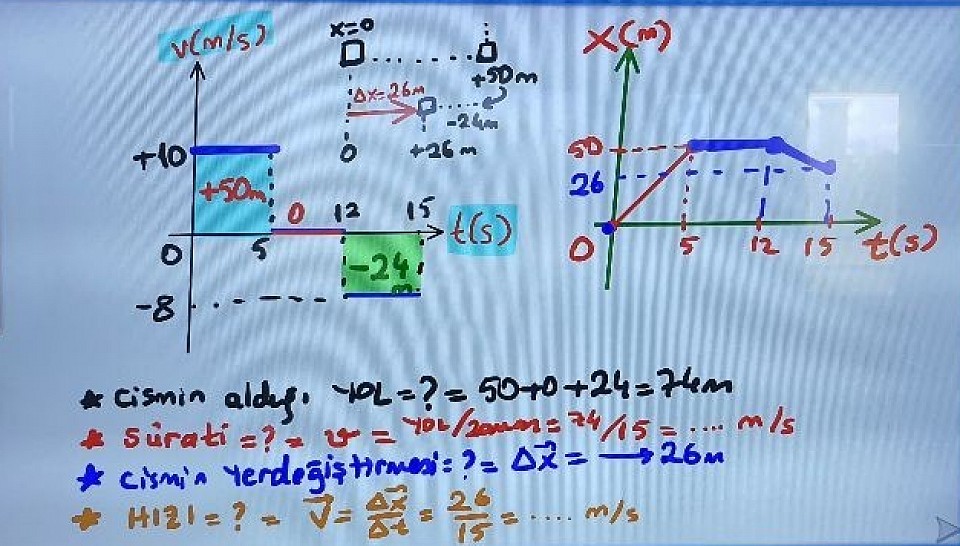 v(m/s)
x=0
+50m
Δx=26m
-24m
0
+26m
+10
+50m
0
12
15
t(s)
0
5
-24
m
-8
X(m)
50
26
0
5
12
15
t(s)
* Cismin aldığı YOL=?=50+0+24=74m
* Sürati=?=v=YOL/zaman=74/15=.... m/s
* Cismin Yerdeğiştirmesi=?=Δx=→26m
* HIZI=?=V=Δx/Δt=26/15=.... m/s